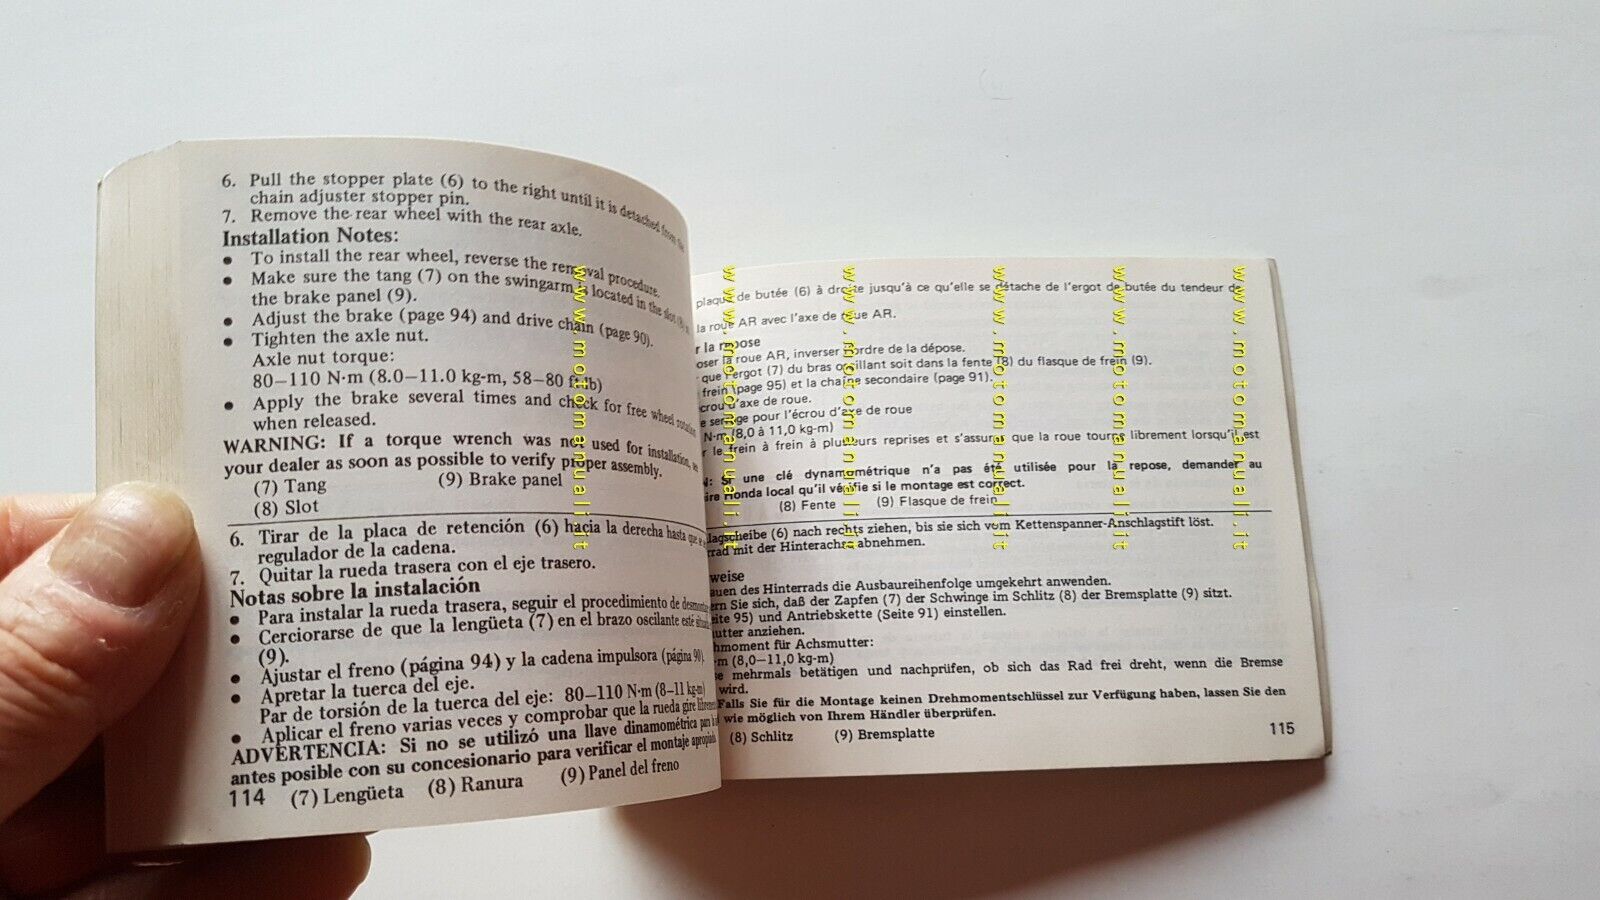 6. Pull the stopper plate (6) to the right until it is detached from the
chain adjuster stopper pin.
7. Remove the rear wheel with the rear axle.
Installation Notes:
• To install the rear wheel, reverse the removal procedure.
• Make sure the tang (7) on the swingarm is located in the slot (8)
the brake panel (9).
• Adjust the brake (page 94) and drive chain (page 90).
• Tighten the axle nut.
Axle nut torque:
80–110 N·m (8.0–11.0 kg-m, 58–80 ft-lb)
• Apply the brake several times and check for free wheel rotation
when released.
WARNING: If a torque wrench was not used for installation,
your dealer as soon as possible to verify proper assembly.
(7) Tang (9) Brake panel
(8) Slot
6. Tirar de la placa de retención (6) hacia la derecha hasta que
regulador de la cadena.
7. Quitar la rueda trasera con el eje trasero.
Notas sobre la instalación
• Para instalar la rueda trasera, seguir el procedimiento de
• Cerciorarse de que la lengüeta (7) en el brazo oscilante esté
(9).
• Ajustar el freno (página 94) y la cadena impulsora (página 90).
• Apretar la tuerca del eje.
Par de torsión de la tuerca del eje: 80–110 N·m (8–11 kg-m)
• Aplicar el freno varias veces y comprobar que la rueda gire
ADVERTENCIA: Si no se utilizó una llave dinamométrica para
antes posible con su concesionario para verificar el montaje
114 (7) Lengüeta (8) Ranura (9) Panel del freno
plaque de butée (6) à droite jusqu'à ce qu'elle se détache de l'ergot de butée du tendeur de
la roue AR avec l'axe de roue AR.
r la repose
oser la roue AR, inverser l'ordre de la dépose.
que l'ergot (7) du bras oscillant soit dans la fente (8) du flasque de frein (9).
frein (page 95) et la chaîne secondaire (page 91).
crou d'axe de roue.
e serrage pour l'écrou d'axe de roue
N·m (8,0 à 11,0 kg-m)
r le frein à frein à plusieurs reprises et s'assurer que la roue tourne librement lorsqu'il est
N: Si une clé dynamométrique n'a pas été utilisée pour la repose, demander au
ire Honda local qu'il vérifie si le montage est correct.
(8) Fente (9) Flasque de frein
lagscheibe (6) nach rechts ziehen, bis sie sich vom Kettenspanner-Anschlagstift löst.
rrad mit der Hinterachse abnehmen.
weise
auen des Hinterrads die Ausbaureihenfolge umgekehrt anwenden.
ern Sie sich, daß der Zapfen (7) der Schwinge im Schlitz (8) der Bremsplatte (9) sitzt.
eite 95) und Antriebskette (Seite 91) einstellen.
utter anziehen.
hmoment für Achsmutter:
m (8,0–11,0 kg-m)
se mehrmals betätigen und nachprüfen, ob sich das Rad frei dreht, wenn die Bremse
wird.
Falls Sie für die Montage keinen Drehmomentschlüssel zur Verfügung haben, lassen Sie den
wie möglich von Ihrem Händler überprüfen.
(8) Schlitz (9) Bremsplatte
115
www.motomanuali.it
www.motomanuali.it
www.motomanuali.it
www.motomanuali.it
www.motomanuali.it
www.motomanuali.it